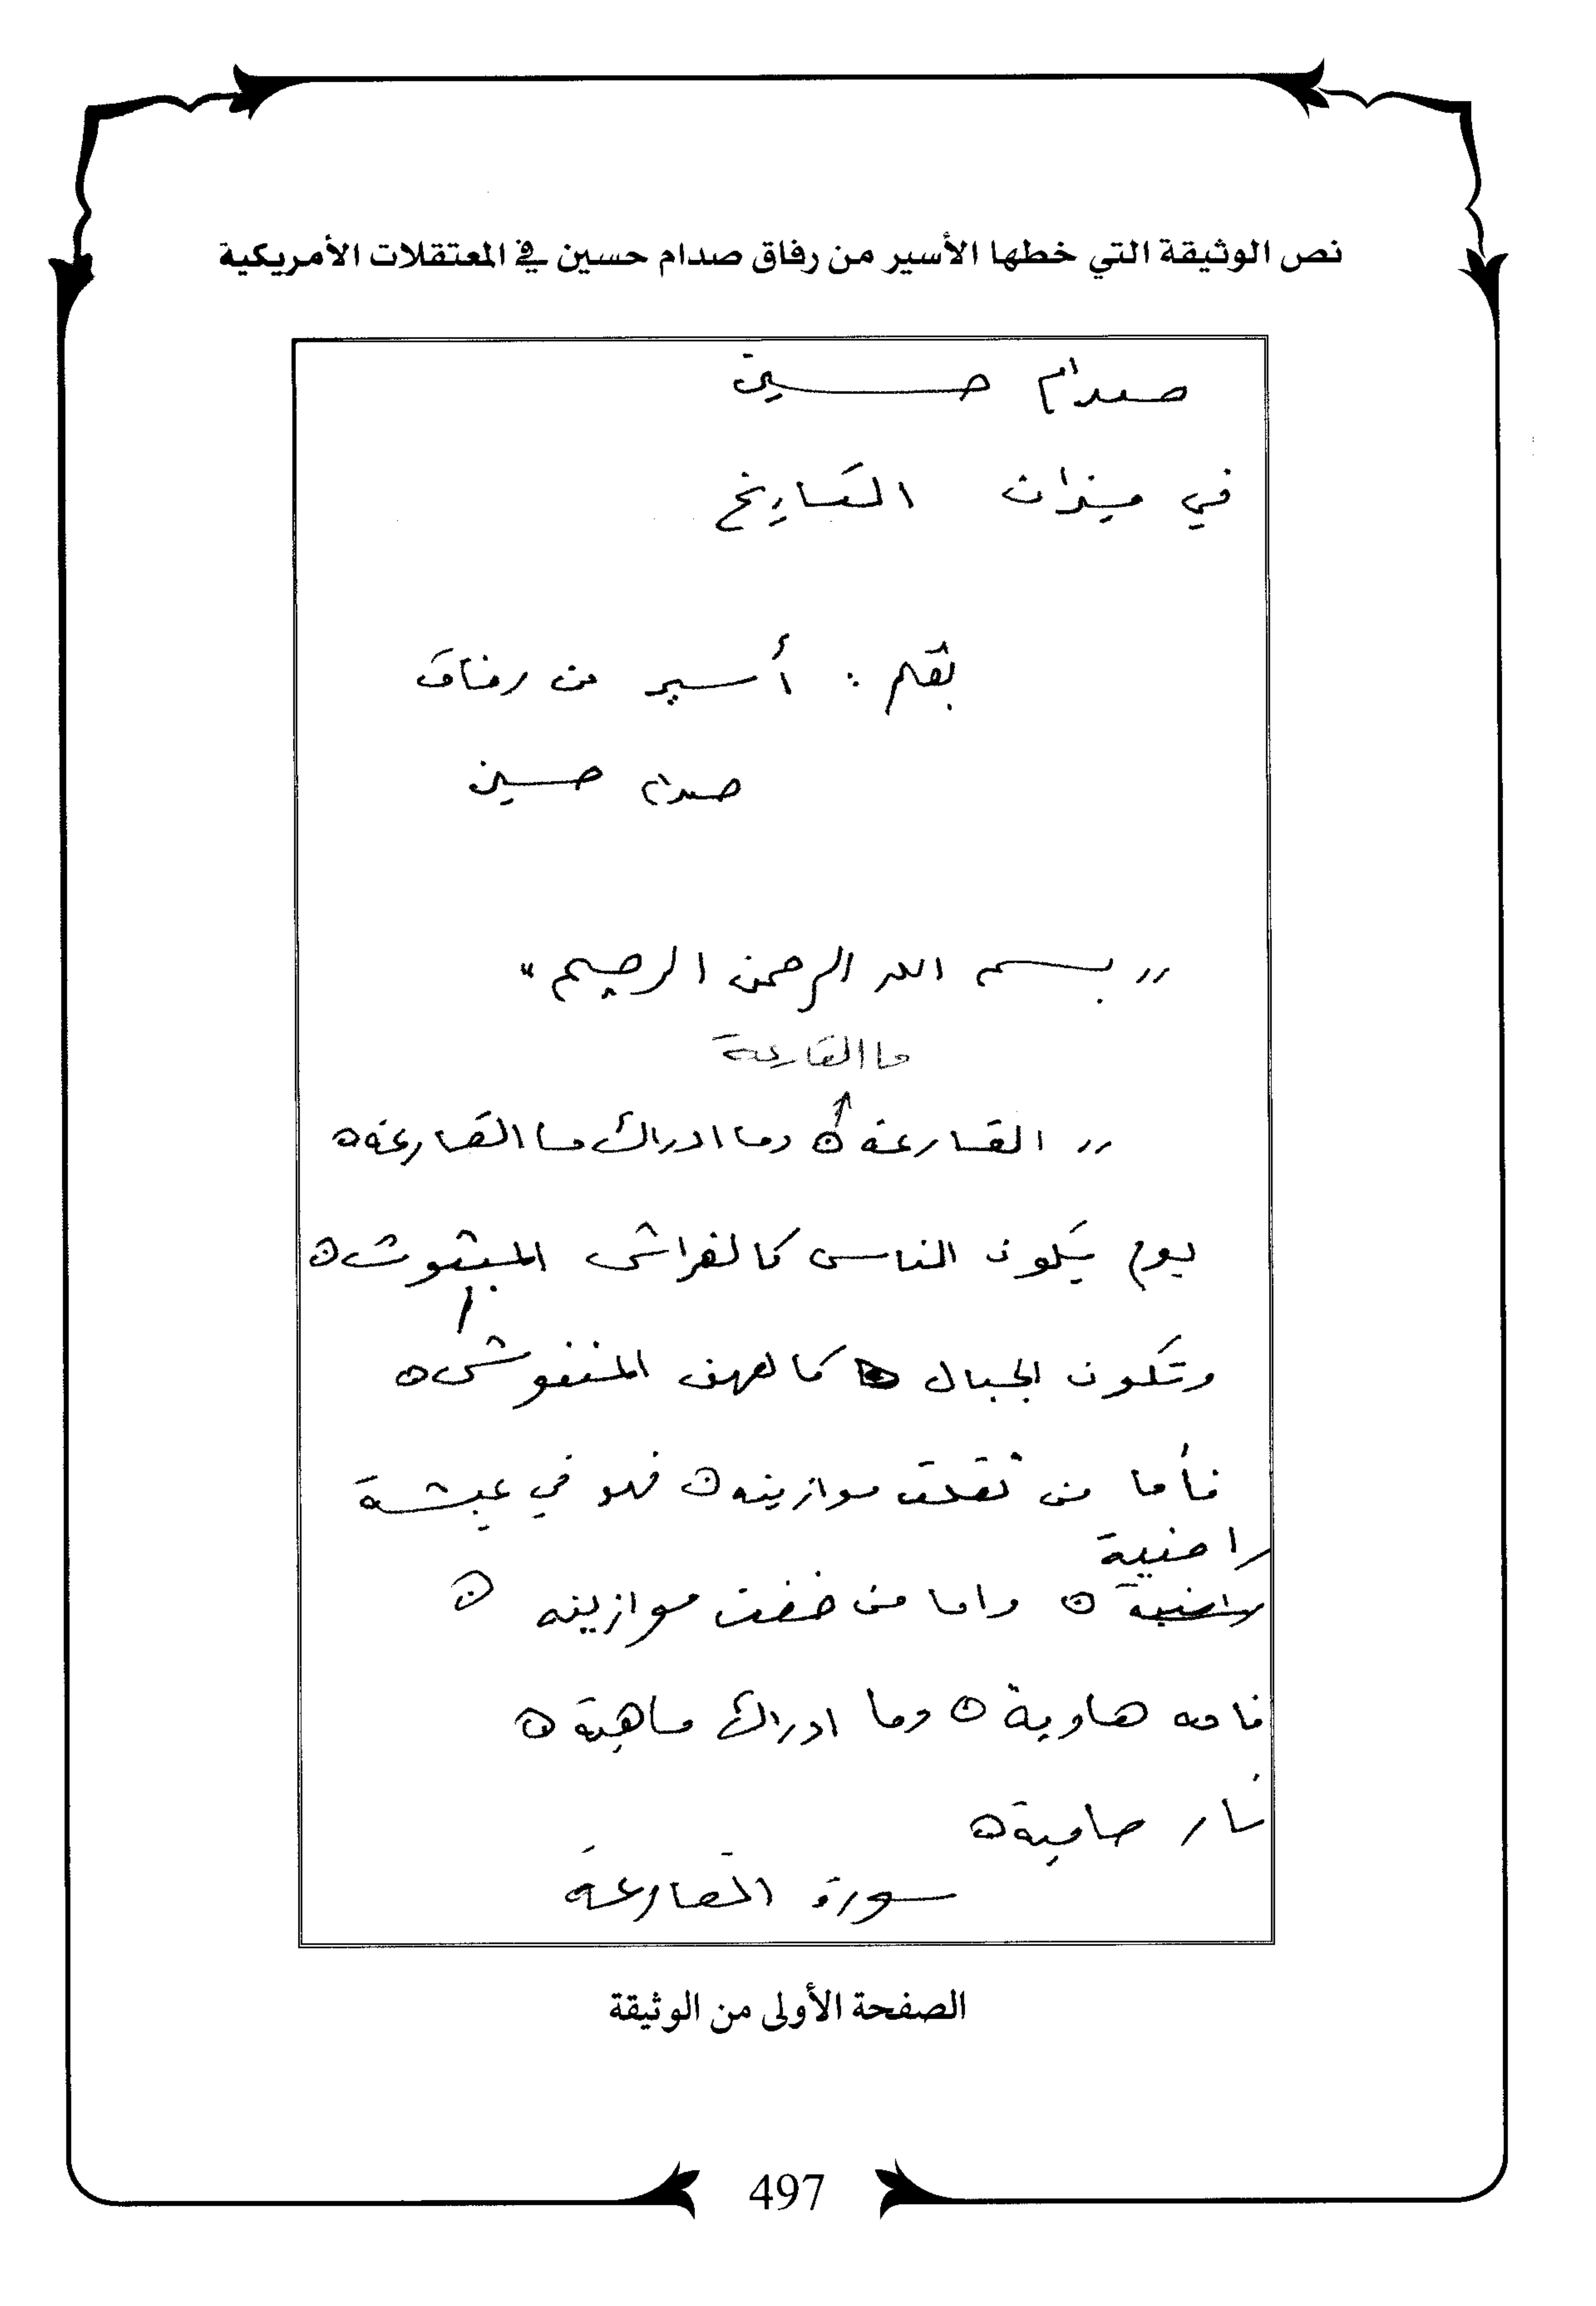 نص الوثيقة التي خطها الأسير من رفاق صدام حسين في المعتقلات الأمريكية
صدام حسين
في ميزان التاريخ
بقلم : أسير من رفاق
صدام حسين
"بسم الله الرحمن الرحيم"
ما القارعة
"القارعة ه وما ادراك ما القارعة ه
يوم يكون الناس كالفراش المبثوث ه
وتكون الجبال كالعهن المنفوش ه
فأما من ثقلت موازينه ه فهو في عيشة
راضية
راضية ه واما من خفت موازينه ه
فامه هاوية ه وما ادراك ماهية ه
نار حامية ه
سورة القارعة
الصفحة الأولى من الوثيقة
497